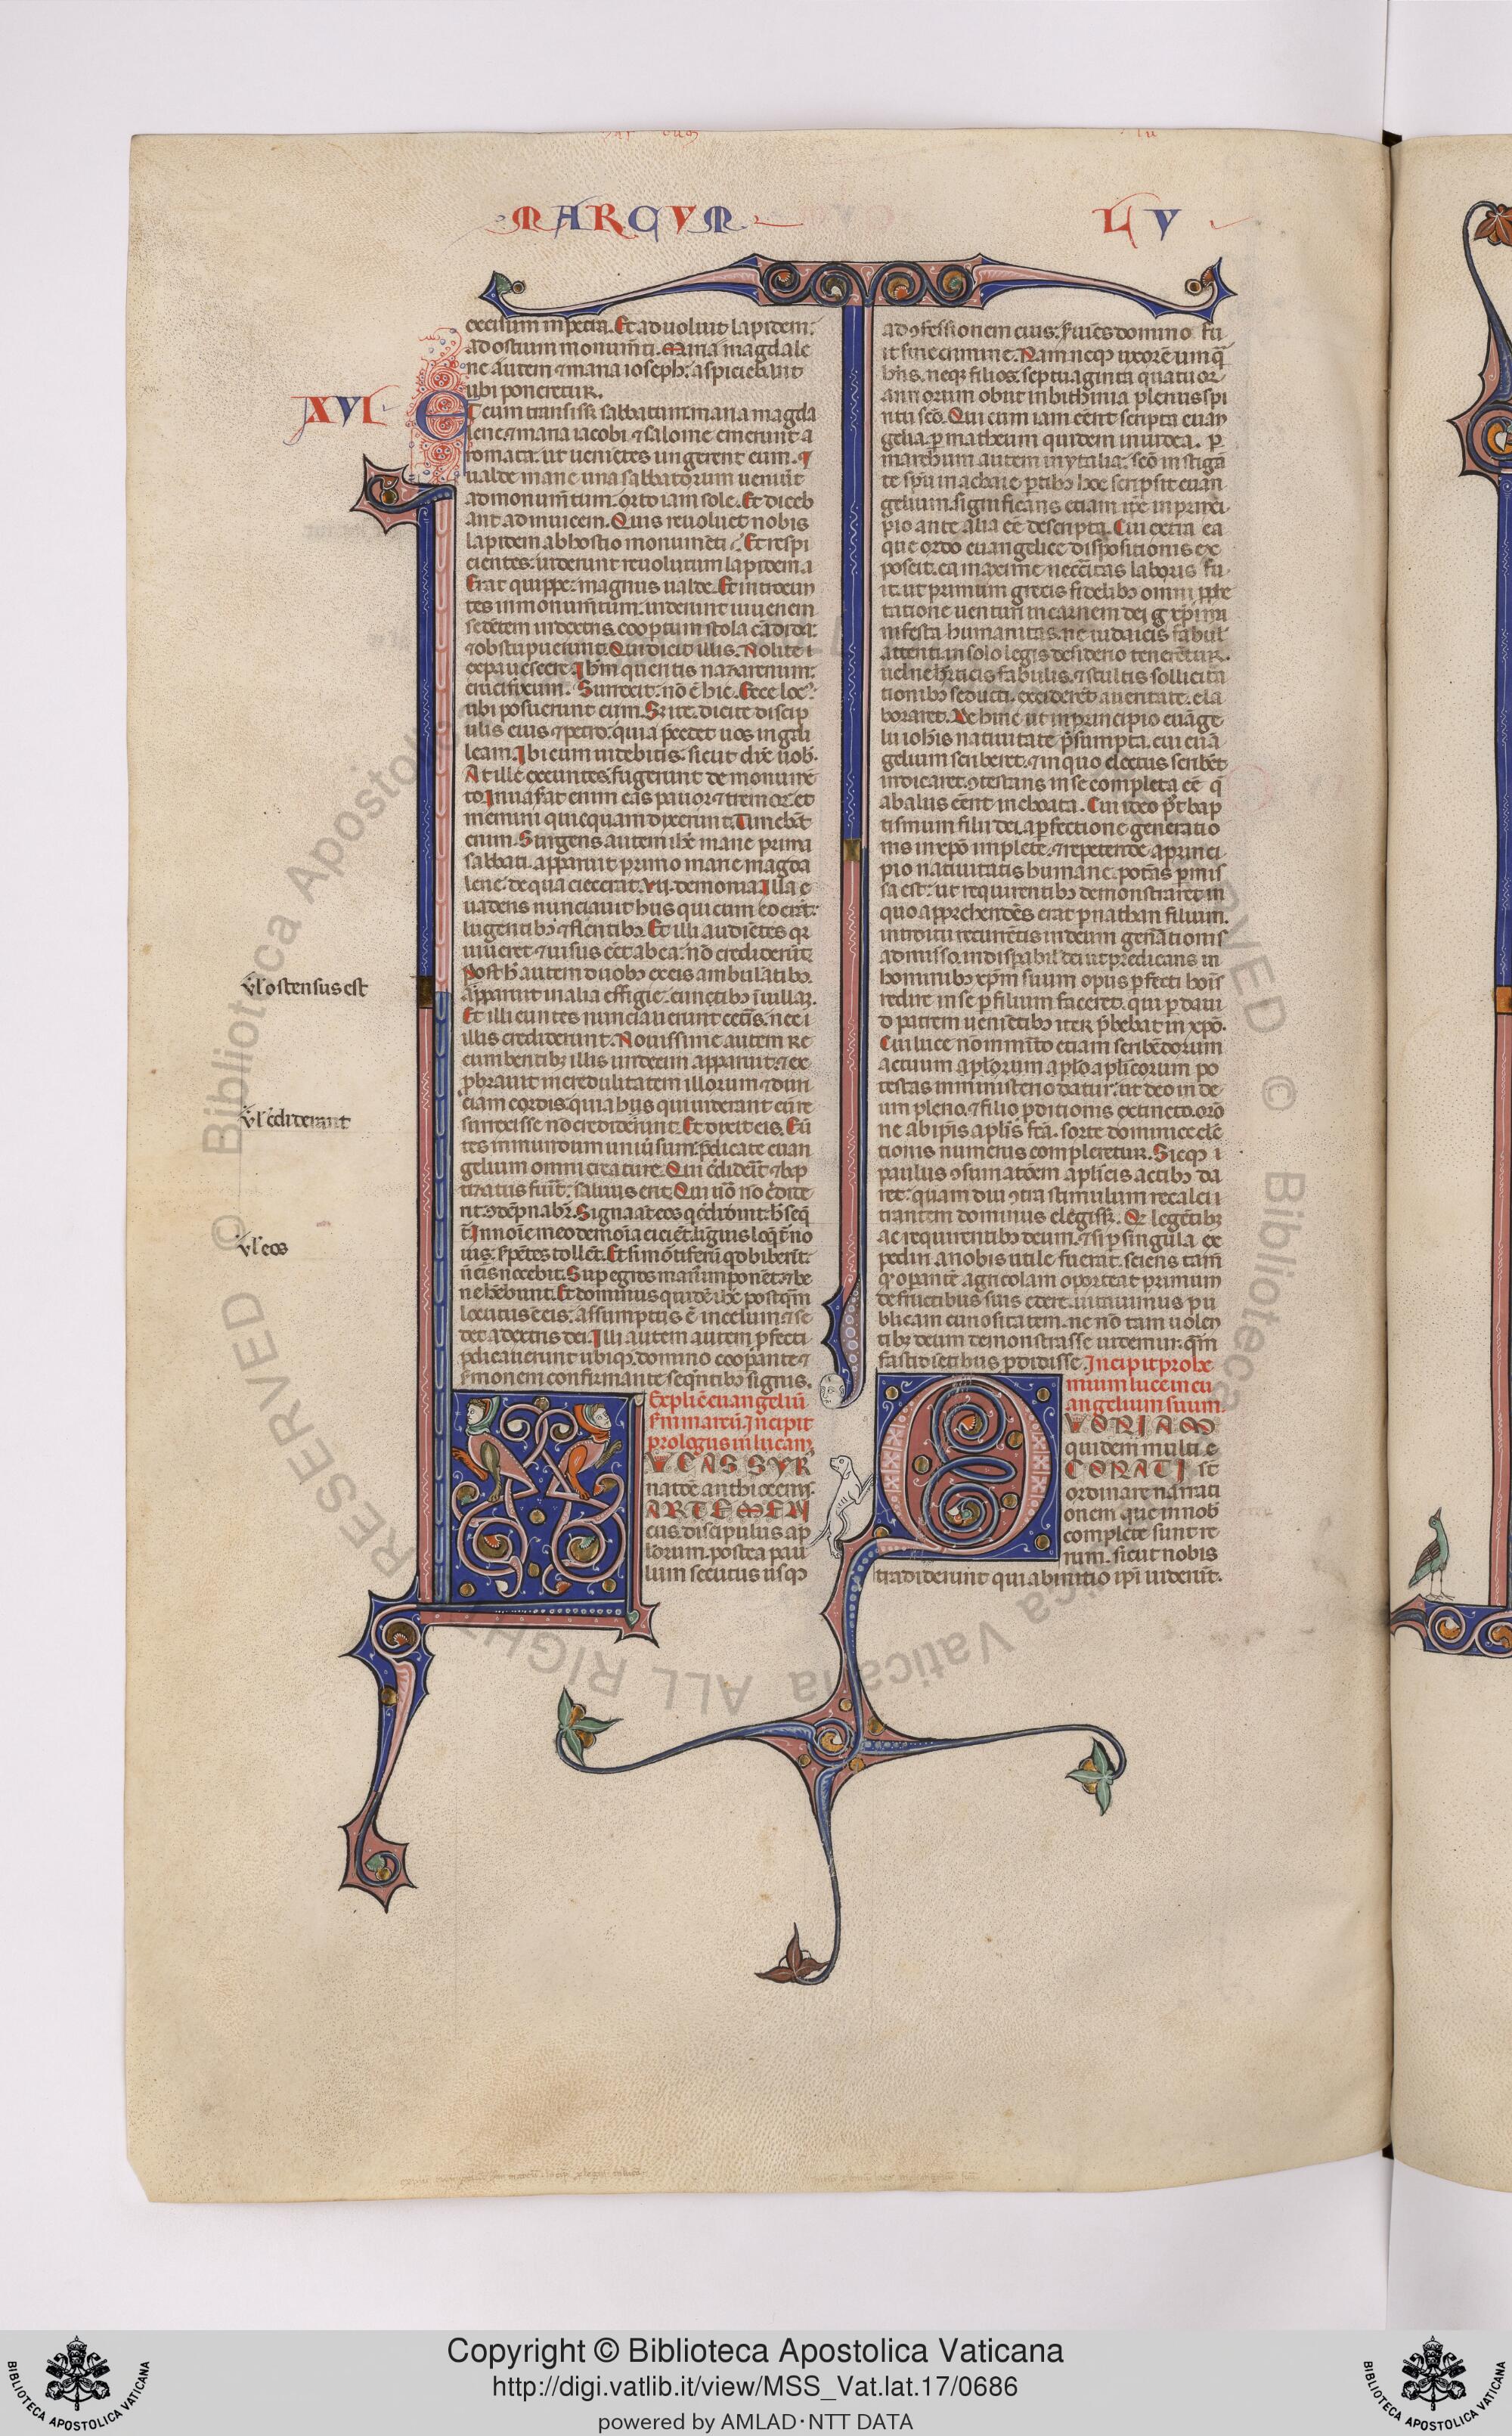 MARCVM
LV
excisum in petra. Et aduoluit lapidem
ad ostium monum̄ti. Maria magdale
ne autem ⁊ maria ioseph: aspiciebant
ubi poneretur.
XVI
ET cum transiss; sabbatum: maria magda
lene ⁊ maria iacobi ⁊ salome emerunt a
romata: ut uenie̅tes ungerent eum. ⁊
ualde mane una sabbatorum ueniu̅t
ad monum̄tum: orto iam sole. Et diceb
ant adinuicem. Quis reuoluet nobis
lapidem ab hostio monume̅ti? Et respi
cientes: uiderunt reuolutum lapidem.
Erat quippe: magnus ualde. Et introeun
tes in monum̄tum: uiderunt iuuenem
sede̅tem in dextris. coop̄tum stola ca̅dida:
⁊ obstupuerunt. Qui dicit illis. Nolite
expauescere. Ihm̄ queritis nazarenum:
crucifixum. Surrexit. no̅ e̅ hic. Ecce loc⁹:
ubi posuerunt eum. Sz ite. dicite discip
ulis eius ⁊ petro: quia p̄cedet uos in gali
leam. Ibi eum uidebitis: sicut dix̄ uob̄.
At ille exeuntes: fugerunt de monume̅
to. Inuas̄at enim eas pauor ⁊ tremor: et
nemini quicquam dixerunt. Timeba̅t
enim. Surgens autem ih̄c mane prima
sabbati. apparuit primo marie magda
lene: de qua eiecerat. VII. demonia. Illa
uadens nunciauit hiis qui cum eo erāt:
lugentibꝫ ⁊ flentibꝫ. Et illi audie̅tes qꝛ
uiueret ⁊ uisus ee̅t ab ea: no̅ crediderūt.
Post h̄ autem duobꝫ ex eis ambulātibꝫ.
vl̄ ostensus est
apparuit in alia effigie. eu̅ntibꝫ i̅ uillaꝫ.
Et illi euntes nunciauerunt cet̄is. nec i
illis crediderunt. Nouissime autem re
cumbentibꝫ illis undecim apparuit: ⁊ ex
p̄brauit incredulitatem illorum ⁊ duri
ciam cordis: quia hiis qui uiderant eu̅ re
vl̄ c̄diderant
surrexisse no̅ crediderunt. Et dixit eis. Eu̅
tes in mundum uniu̅sum: p̄dicate euan
gelium omni creature. Qui c̄diderīt ⁊ bap
tizatus fuīt: saluus erit. Qui uō no̅ c̄dide
rit: ꝯde̅pnabit̄. Signa at̄ eos q c̄dideri̅t: h̄ seq̄
vl̄ eos
t̄. In noīe meo demoīa eiciēt. linguis loq̄t̄ no
uis: s̄pe̅tes tolle̅t. Et si mōtiferū qͥd biberīt:
nō eis nocebit. Sup egros man̄ imponēt: ⁊ be
ne hēbunt. Et dominus quide̅ ih̄c postq̄m
locutus e̅ eis: assumptus e̅ in celum: ⁊ se
det a dextris dei. Illi autem autem p̄fecti
p̄dicauerunt ubiqꝫ. domino coop̄ante ⁊
s̄monem confirmante seq̄ntibꝫ signis.
Explic̄ euangeliū
s̄m marcū. Incipit
prologus in lucam.
LVCAS SYR
natōe anthiocens̄.
ARTE MEDI
cus. discipulus ap
l̄orum. postea pau
lum secutus usqꝫ
ad ꝯfessionem eius: s̄uie̅s domino. fu
it sine crimine. Nam neqꝫ uxore̅ umq̄
h̄ns. neqꝫ filios. septuaginta quatuor.
annorum obiit in bithinia plenus spi
ritu scō. Qui cum iam ee̅nt scripta euan
gelia. p̄ matheum quidem in iudea. p̄
marchum autem in ytalia: scō instigan
te spū in achaie p̄tibꝫ hoc scripsit euan
gelium. significans etiam ip̄e in princi
pio ante alia ee̅ descripta. Cui extra ea
que ordo euangelice dispositionis ex
poscit. ea maxime neccītas laboris fu
it: ut primum grecis fidelibꝫ omni p̄phe
tatione uenturi in carnem dei xp̄i ma
nifesta humanitas. ne iudaicis fabul̄
attenti. in solo legis desiderio tenere̅tur.
uel ne h̄eticis fabulis. ⁊ stultis sollicita
tionibꝫ seducti. exciderēt a ueritate. ela
boraret. De hinc ut in principio euāge
lii ioh̄is natiuitate p̄sumpta. cui euā
gelium scriberet. ⁊ in quo electus scribēt
indicaret. ꝯtestans in se completa ee̅. q̄
ab aliis ee̅nt inchoata. Cui ideo p̄t bap
tismum filii dei. a p̄fectione generatio
nis in xp̄o implete. ⁊ repetende a princi
pio natiuitatis humane. potās p̄mis
sa est: ut requirentibꝫ demonstraret in
quo apprehendēs erat p̄ nathan filium.
introitu recurrētis in deum gen̄ationis
admisso. indispabil̄ dei ut predicans in
hominibꝫ xp̄m suum opus p̄fecti hoīs
redire in se p̄ filium faceret. qui p̄ daui
d patrem ueniētibꝫ iter p̄bebat in xp̄o.
Cui luce nō inmīto etiam scribēdorum
actuum apl̄orum
testas in ministerio datur: ut deo in de
um pleno. ⁊ filio p̄ditionis extincto. orō
ne ab ip̄is apl̄is fc̄a. sorte dominice elē
ctionis numerus compleretur. Sicqꝫ
paulus ꝯsumatōem apl̄icis actibꝫ da
ret: quam diu ꝯtra stimulum recalci
trantem dominus elegiss;. Qꝛ legētibꝫ
ac requirentibꝫ deum. ⁊ si p̄ singula ex
pediri a nobis utile fuerat. sciens tam̄
qꝫ op̄antē agricolam oporteat primum
de fructibus suis edere. uitauimus pu
blicam curiositatem. ne nō tam uolen
tibꝫ deum demonstrasse uidemur. q̄m
fastidientibus p̄didisse. Incipit prohe
mium luce in eu
angelium suum.
QVONIAM
quidem multi
CONATI st̄
ordinare narrati
onem que in nob̄
complete sunt re
rum. sicut nobis
tradiderunt qui ab initio ip̄i uiderūt.
Copyright © Biblioteca Apostolica Vaticana
http://digi.vatlib.it/view/MSS_Vat.lat.17/0686
powered by AMLAD·NTT DATA
BIBLIOTECA APOSTOLICA VATICANA
BIBLIOTECA APOSTOLICA VATICANA